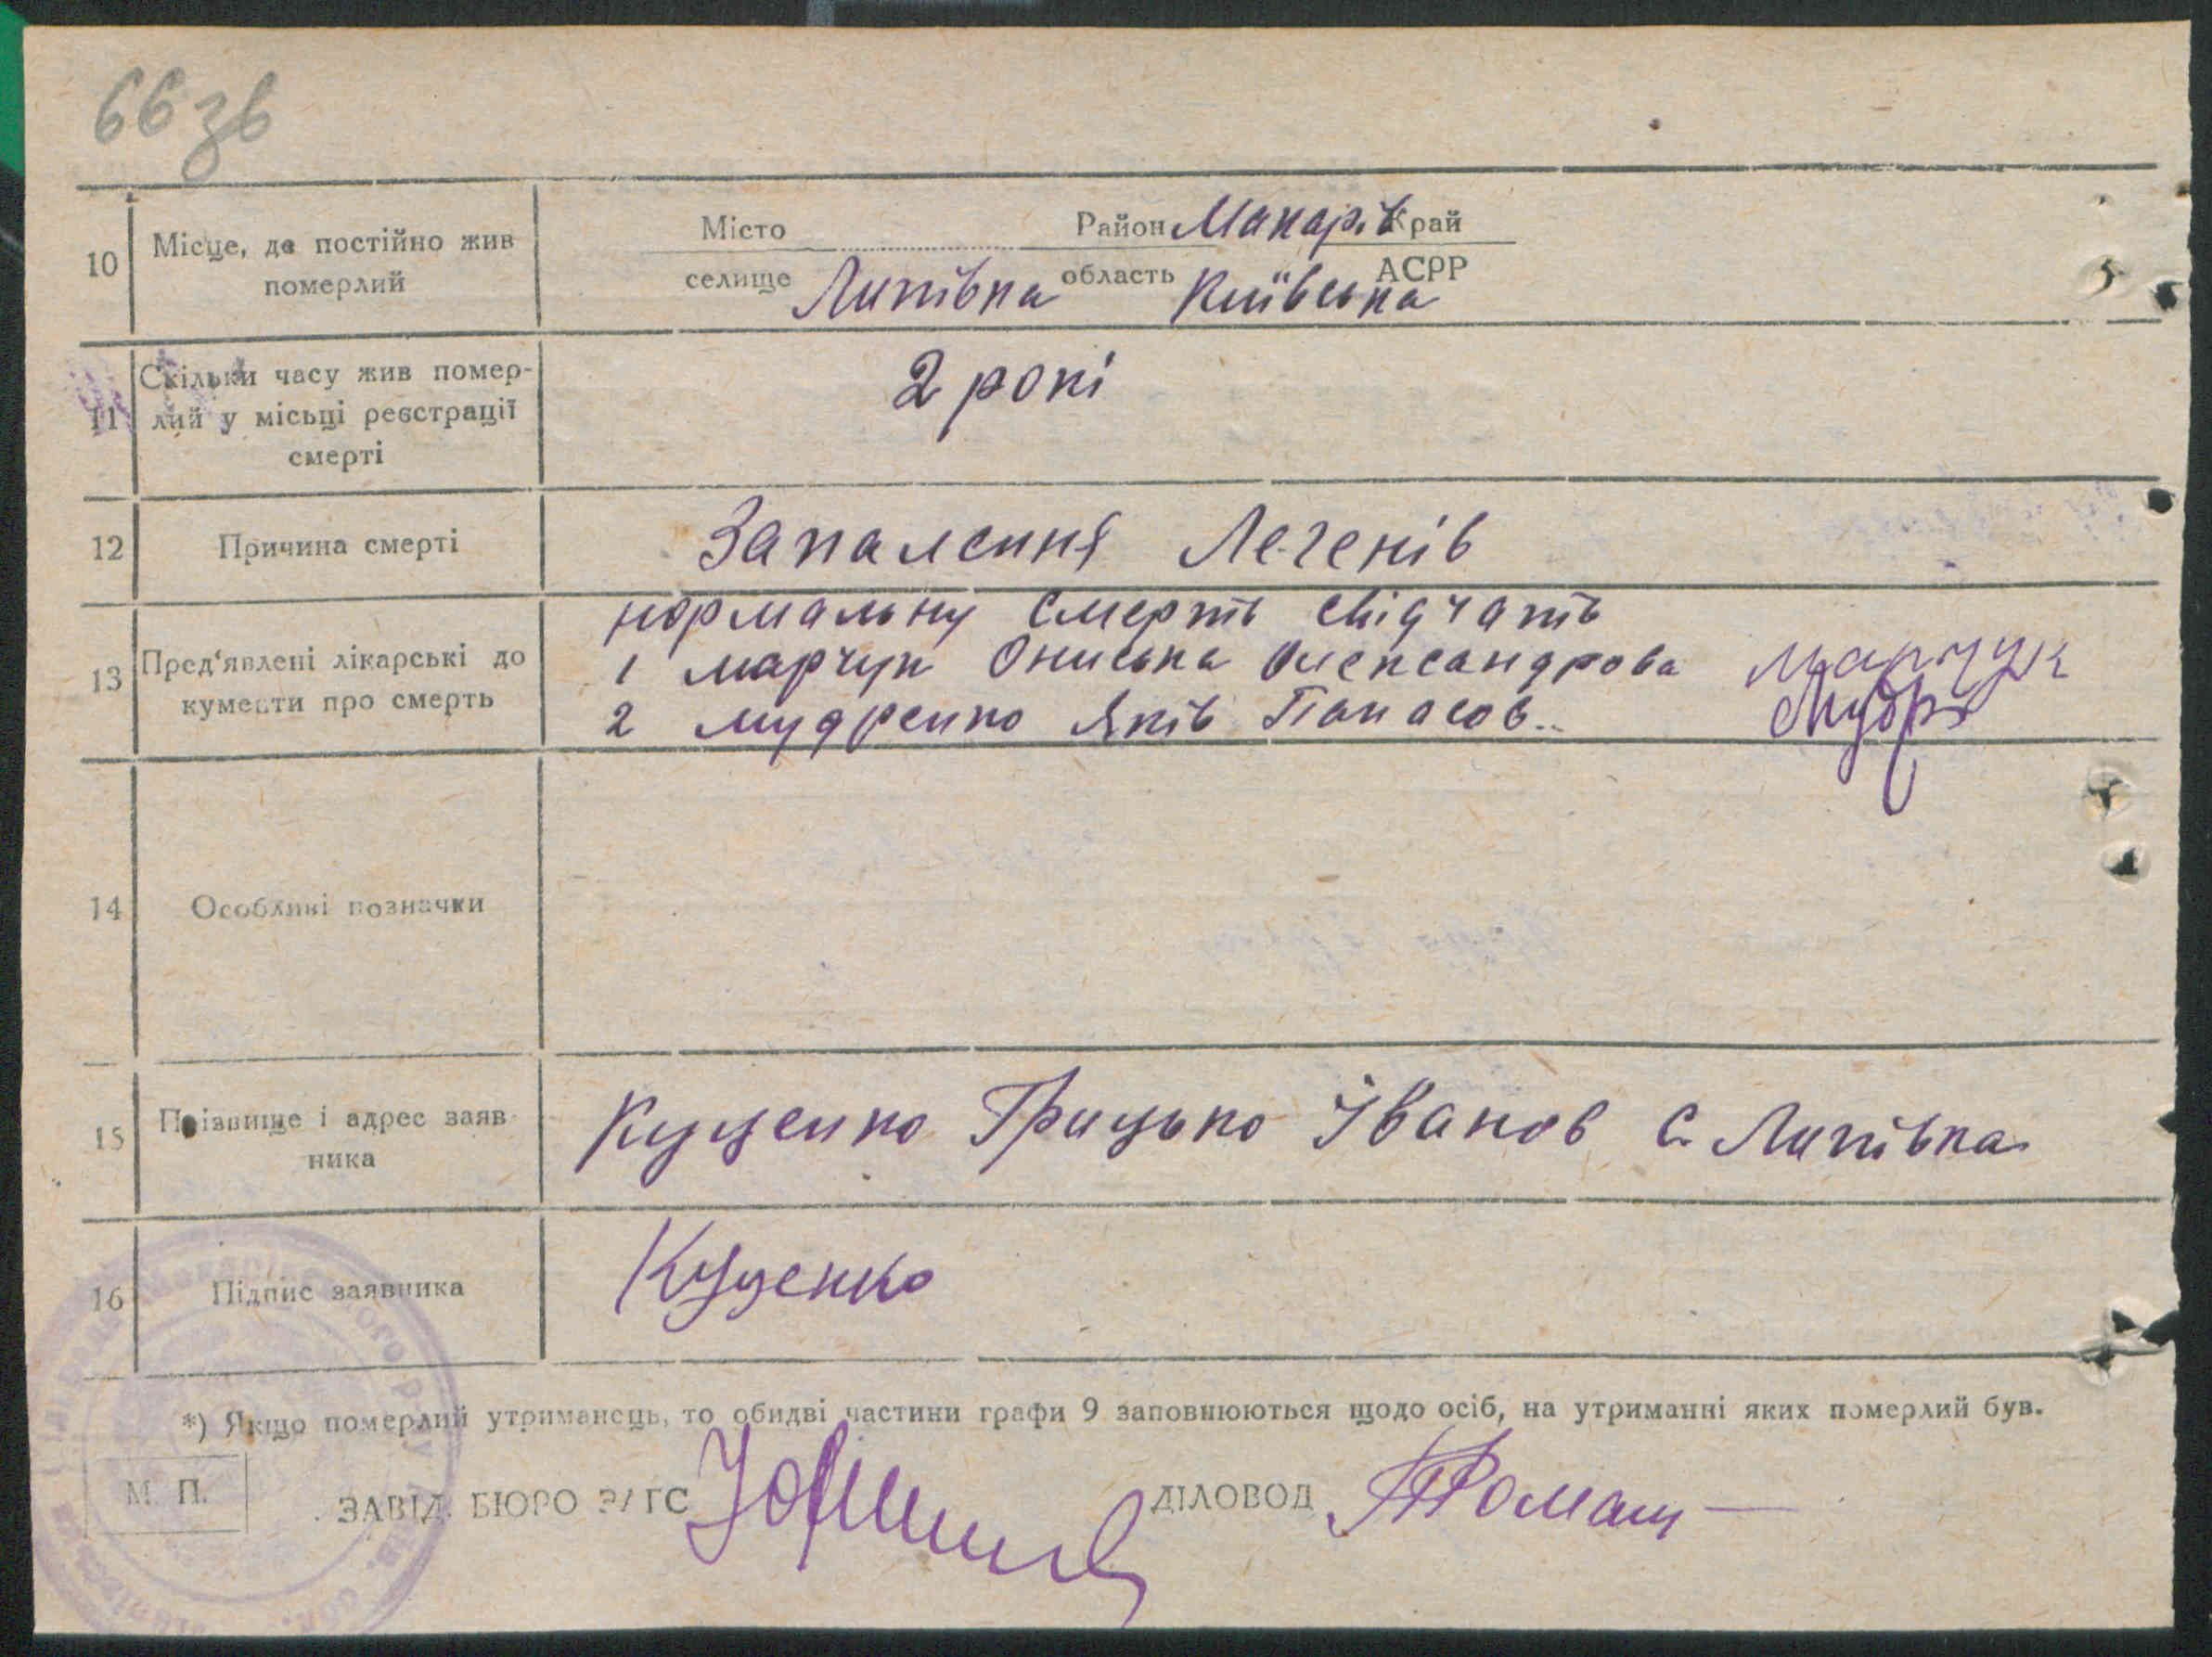 66 зв
10 Місце, де постійно жив померлий
Місто Район Макарів Край
селище Липівка область Київська АСРР
11 Скільки часу жив помер-
лий у місьці реєстрації
смерті
2 рокі
12 Причина смерті
Запалення Легенів
13 Пред'явлені лікарські до
кументи про смерть
нормальну смерть свідчать
1 Марчук Ониська Олександрова Марчук
2 Мудренко Яків Панасов..
14 Особливі позначки
15 Прізвище і адрес заяв-
ника
Куценко Грицько Іванов с. Липівка
16 Підпис заявника
Куценко
*) Якщо померлий утриманець, то обидві частини графи 9 заповнюються щодо осіб, на утриманні яких померлий був.
М. П.
ЗАВІД. БЮРО ЗАГС
ДІЛОВОД